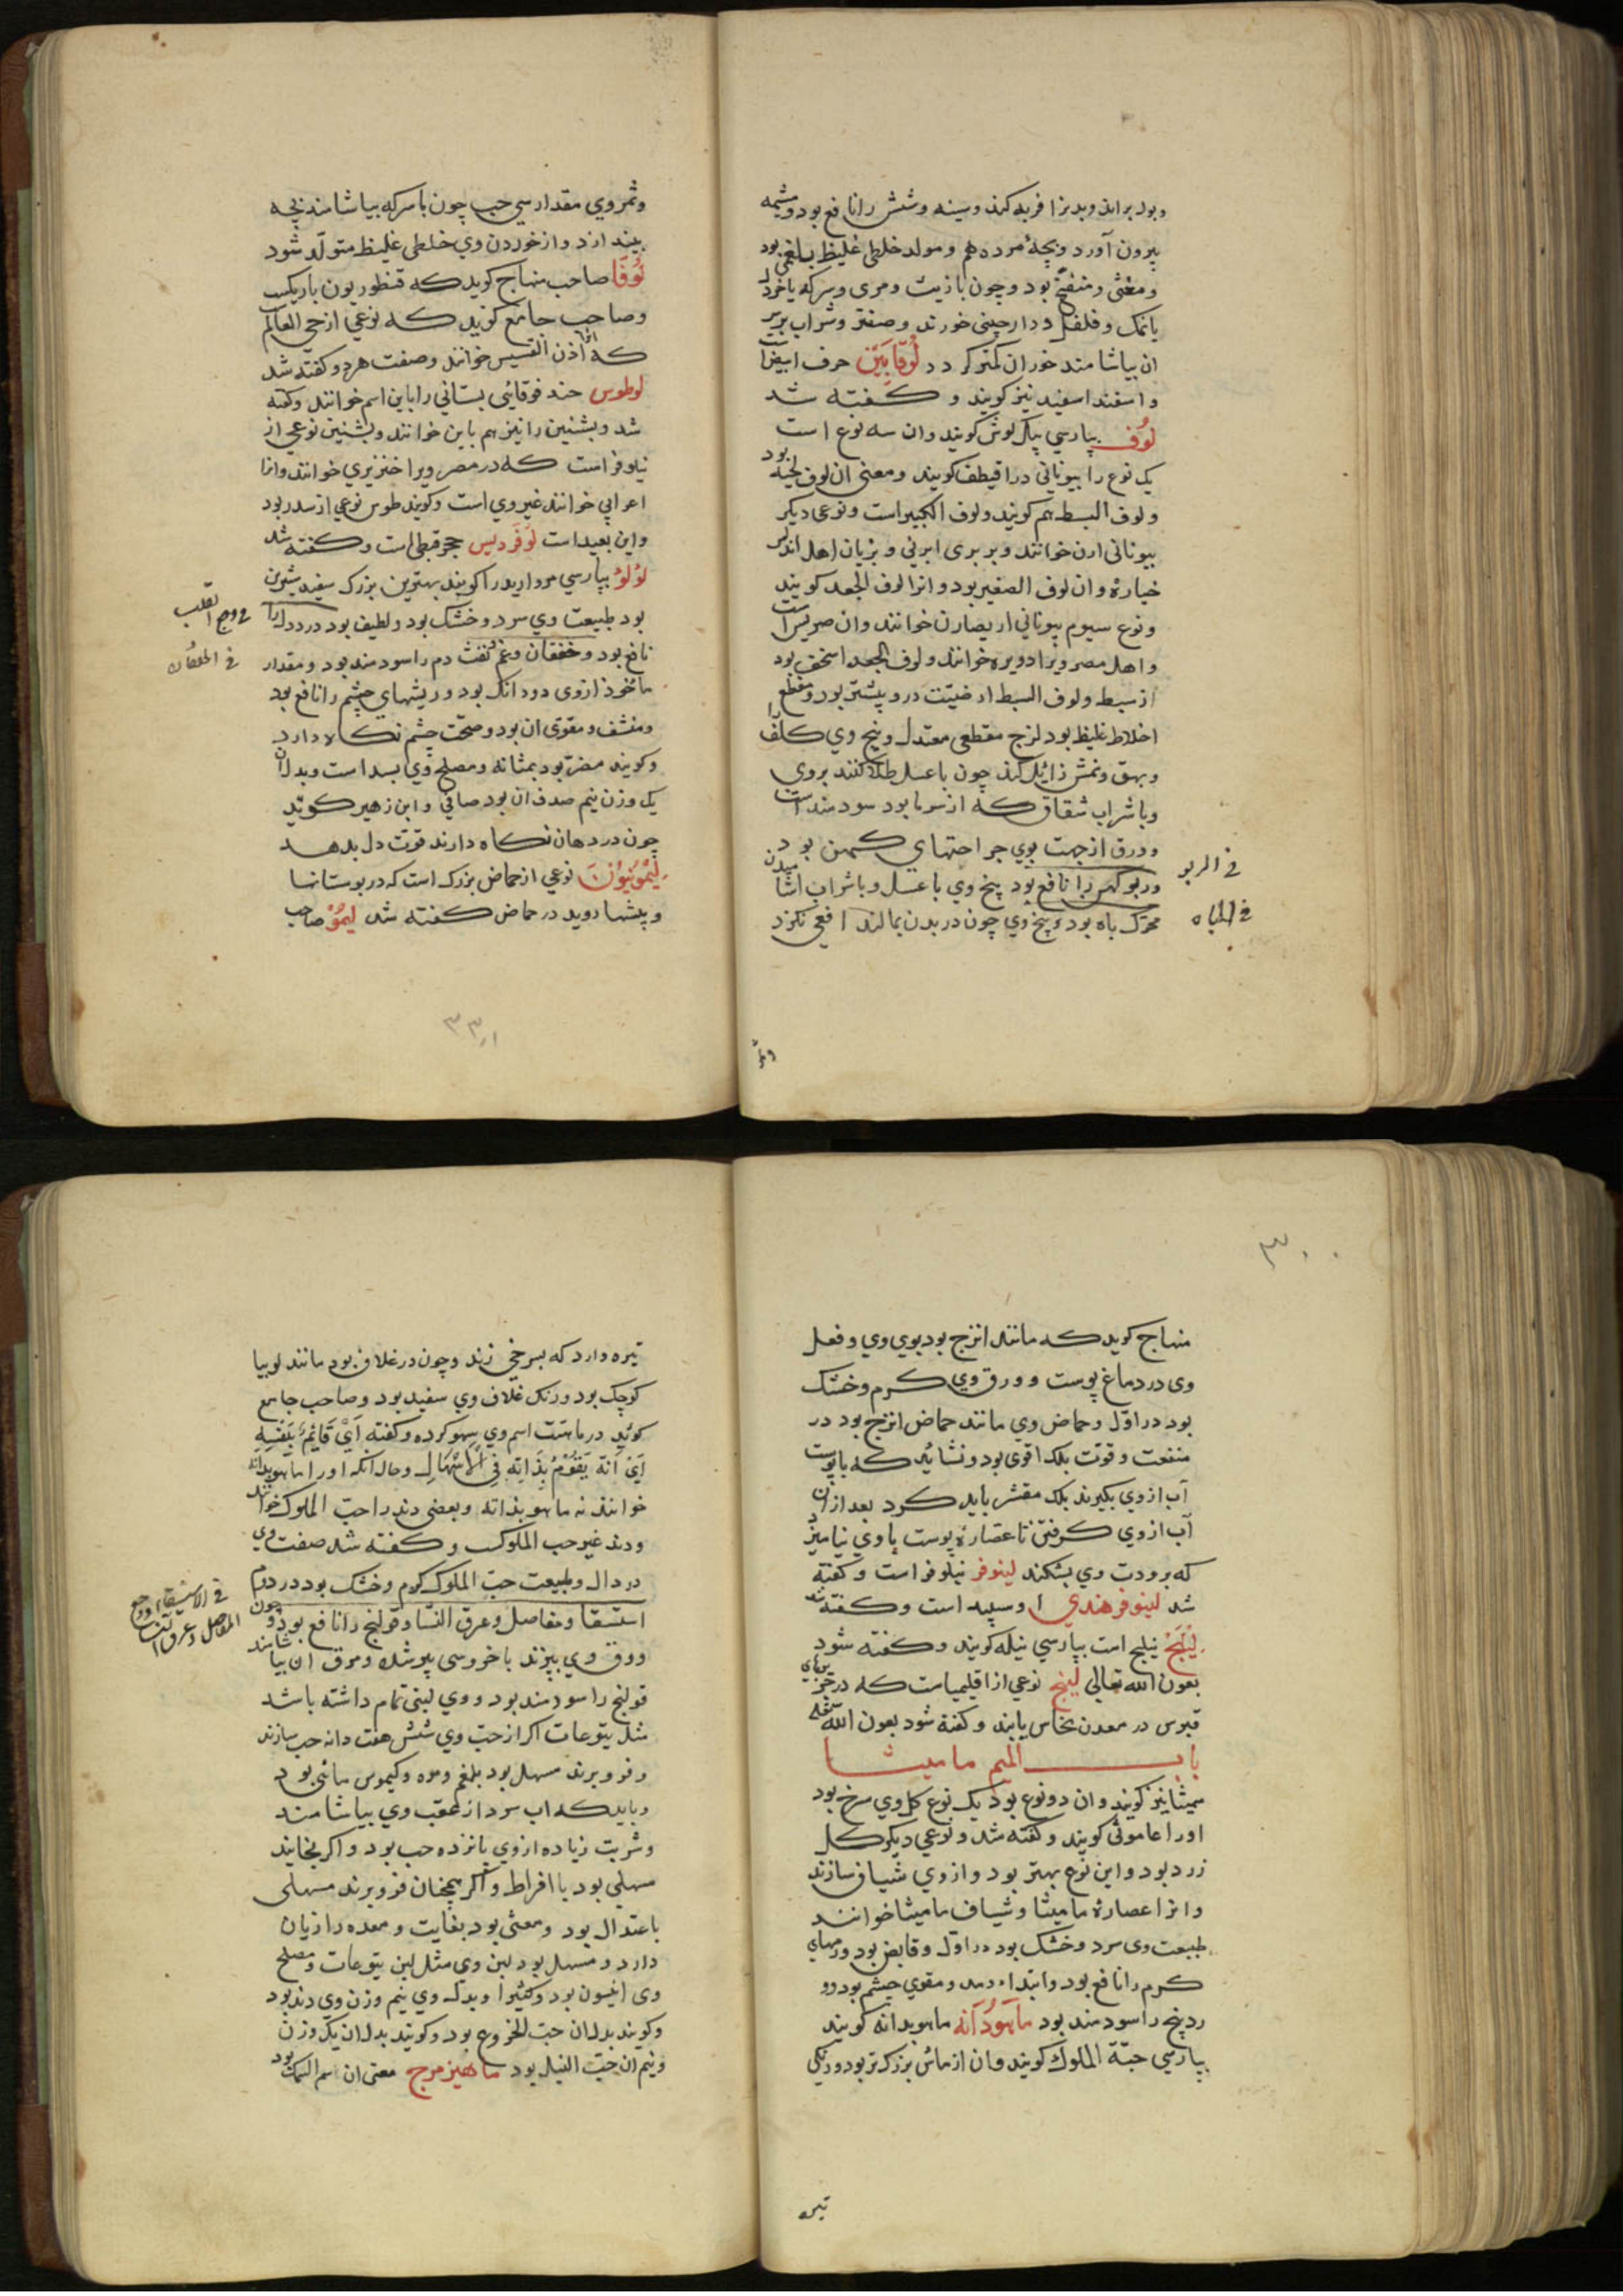 وبول براند وبدن را فربه کند وسینه وشش را نافع بود ومشیمه
بیرون آورد وبچهٔ مرده هم ومولد خلطی غلیظ بلغمی بود
ومغثی ومنفخ بود وچون با زیت ومری وسرکه یا خردل
یا نمک وفلفل ودارچینی خورند وصعتر وشراب بر سر
ان بیاشامند ضرر ان کمتر کردد لوقابین حرف ابیض است
واسفند اسفید نیز کویند و کفته شد
لوف بپارسی پیل کوش کویند وان سه نوع است
یک نوع را بیونانی دراقیطف کویند ومعنی ان لوف لحیه بود
ولوف السبط هم کویند ولوف الکبیر است ونوعی دیکر
بیونانی ارن خوانند وبربری ایرنی وبزبان اهل اندلس
خیاره وان لوف الصغیر بود وانرا لوف الجعد کویند
ونوع سیوم بیونانی اریصارن خوانند وان صریس است
واهل مصر ویرا دویره خوانند ولوف الجعد اسخن بود
از سبط ولوف السبط ارضیت درو بیشتر بود ومقطع
اخلاط غلیظ بود لزج مقطعی معتدل وبیخ وی کلف را
وبهق ونمش زائل کند چون با عسل طلا کنند بروی
وبا شراب شقاق که از سرما بود سودمند است
وورق از جهت بوی جراحتهای کهن بود
وربو کهن را نافع بود بیخ وی با عسل وبا شراب اشامیدن
محرک باه بود وبیخ وی چون در بدن بمالند افعی نکزد
فی الربو
فی الباه
وثمر
وثمر وی مقدار سی حب چون با سرکه بیاشامند بچه
بیندازد واز خوردن وی خلطی غلیظ متولد شود
لوفا صاحب منهاج کوید که قنطوریون باریکست
وصاحب جامع کوید که نوعی از حی العالم
که انرا اذن القسیس خوانند وصفت هردو کفته شد
لوطوس حندقوقائی بستانی را باین اسم خوانند وکفته
شد وبشنین را نیز هم باین خوانند وبشنین نوعی از
نیلوفر است که در مصر ویرا خنزیری خوانند وانرا
اعرابی خوانند غیر وی است وکویند طوس نوعی از سدر بود
واین بعید است لوفردیس حجر قبطی است وکفته شد
لؤلؤ بپارسی مروارید را کویند بهترین بزرک سفید شیرین
بود طبیعت وی سرد وخشک بود ولطیف بود درد دل را
نافع بود وخفقان وغم ونفث دم را سودمند بود ومقدار
ماخوذ ازوی دودانک بود وریشهای چشم را نافع بود
ومنشف ومقوی ان بود وصحت چشم نکاه دارد
وکویند مضر بود بمثانه ومصلح وی بسد است وبدل ان
یک وزن نیم صدف ان بود صافی وابن زهیر کوید
چون در دهان نکاه دارند قوت دل بدهد
لیمونیون نوعی از حماض بزرک است که در بوستانها
وبیشها روید در حماض کفته شد لیمو صاحب
فی وجع القلب
فی الخفقان
۳۳۱
۳۰۰
منهاج کوید که مانند اترج بود بوی وی وفعل
وی در دماغ پوست وورق وی کرم وخشک
بود در اول وحماض وی مانند حماض اترج بود در
منفعت وقوت بلک اقوی بود ونشاید که با پوست
آب ازوی بکیرند بلک مقشر باید کرد بعد از ان
آب ازوی کرفتن تا عصارهٔ پوست با وی نیامیزد
که برودت وی بشکند لینوفر نیلوفر است وکفته
شد لینوفر هندی اوسپید است وکفته شد
لینج نیلج است بپارسی نیله کویند وکفته شود
بعون الله تعالی لینج نوعی از اقلیمیاست که در جزیرهای
قبرس در معدن نحاس یابند وکفته شود بعون الله تعالی
باب المیم مامیثا
میثا نیز کویند وان دو نوع بود یک نوع کل وی سرخ بود
اورا عامونی کویند وکفته شد ونوعی دیکر کل
زرد بود واین نوع بهتر بود وازوی شیاف سازند
وانرا عصارهٔ مامیثا وشیاف مامیثا خوانند
طبیعت وی سرد وخشک بود در اول وقابض بود ورمهای
کرم را نافع بود وابتداء رمد ومقوی چشم بود ودو
ردینخ را سودمند بود ماهودانه ماهوبدانه کویند
بپارسی حبة الملوک کویند وان از ماش بزرک تر بود ورنکی
تیره
تیره دارد که بسرخی زند وچون در غلاف بود مانند لوبیا
کوچک بود ورنک غلاف وی سفید بود وصاحب جامع
کوید در ماهیت اسم وی سهو کرده وکفته ای قائم بنفسه
ای انه یقوم بذاته فی الاسهال وحال آنکه اورا ماهوبدانه
خوانند نه ماهو بذاته وبعضی دند را حب الملوک خوانند
ودند غیر حب الملوکست وکفته شد صفت وی
در دال وطبیعت حب الملوک کرم وخشک بود در دوم
استسقا ومفاصل وعرق النسا وقولنج را نافع بود وچون
ورق وی بپزند با خروسی پیر شده ومرق ان بیاشامند
قولنج را سودمند بود ووی لبنی تمام داشته باشد
مثل یتوعات اکر از حب وی شش هفت دانه حب سازند
وفرو برند مسهل بود بلغم ومره وکیموس مائی بود
وباید که اب سرد از عقب وی بیاشامند
وشربت زیاده ازوی پانزده حب بود واکر بخایند
مسهلی بود با افراط واکر همچنان فرو برند مسهلی
باعتدال بود ومغثی بود بغایت ومعده را زیان
دارد ومسهل بود لبن وی مثل لبن یتوعات ومصلح
وی انیسون بود وکثیرا وبدل وی نیم وزن وی دند بود
وکویند بدل ان حب الخروع بود وکویند بدل ان یک وزن
ونیم ان حب النیل بود ماهیزهرج معنی ان اسم السمک بود
فی الاستسقا ووجع
المفاصل وعرق النسا